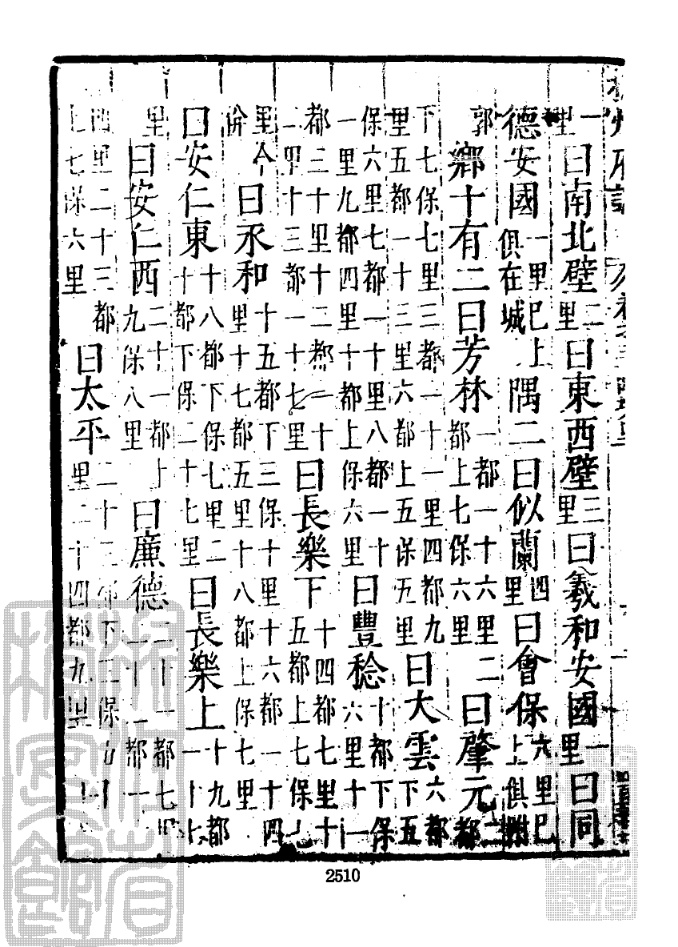 州府志
一里曰南北壁二里曰東西壁三里曰羲和安國一里曰同
德安國一里巳上俱在城隅二曰似蘭四里曰會保六里巳上俱附
郭鄉十有二曰芳林一都一十六里二都上七保六里曰肇元二都
下七保七里三都一十一里四都九里五都一十三里六都上五保五里曰大雲六都下五
保六里七都一十里八都一十一里九都四里十都上保六里曰豐稔十都下保六里十一
都三十里十二都一十二里十三都一十七里曰長樂下十四都七里十五都上七保
里今併曰永和十五都下三保十里十六都一十四里十七都五里十八都上保七里
曰安仁東十八都下保七里二十都下保二十七里曰長樂上十九都一十七
里曰安仁西二十一都上九保八里曰廉德二十一都七
四里二十三都上七保六里曰太平二十三都下保里二十四都九里
2510